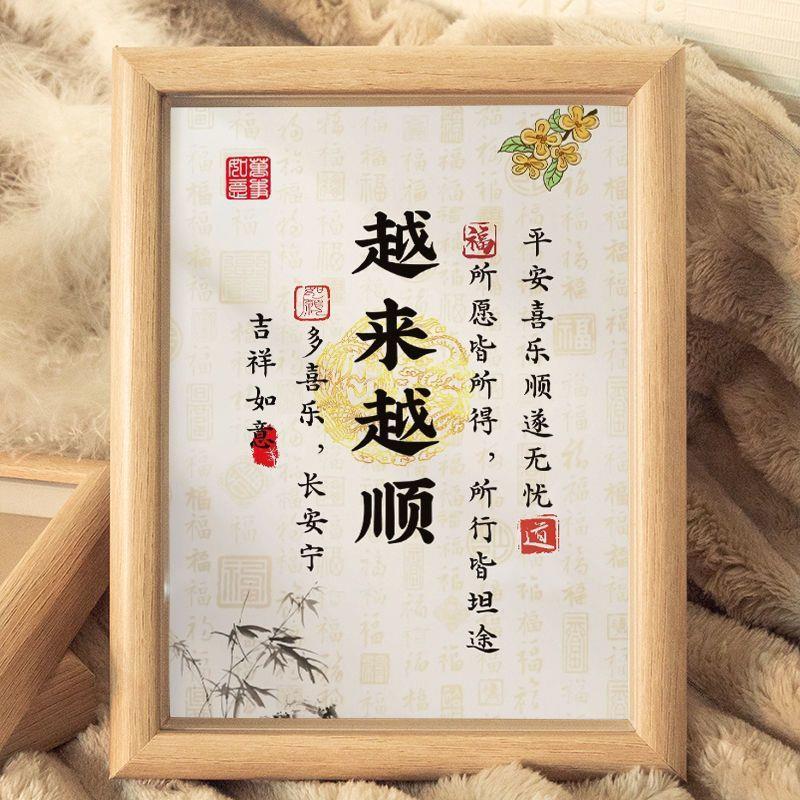 平安喜乐顺遂无忧
道
福
所愿皆所得，所行皆坦途
越来越顺
如愿
多喜乐，长安宁
吉祥如意
萬事如意